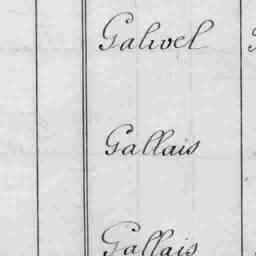 Galwel
Gallais
Gallais